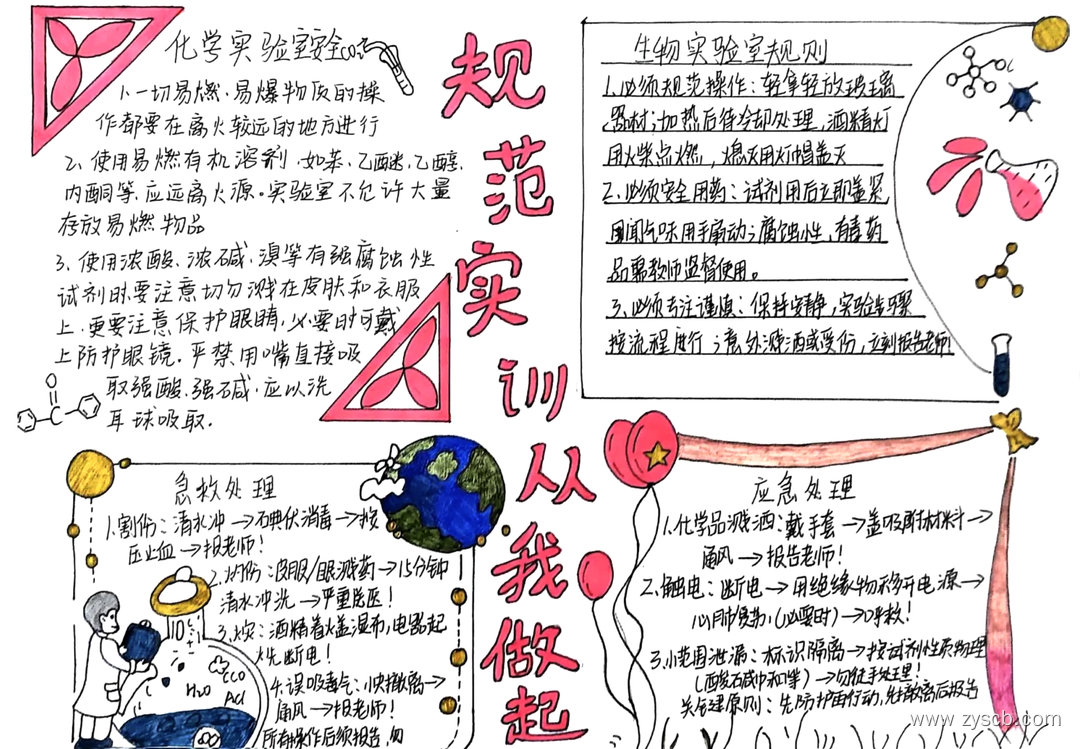 化学实验室安全
CO₂
1.一切易燃、易爆物质的操
作都要在离火较远的地方进行
2、使用易燃有机溶剂.如苯,乙醚,乙醇,
丙酮等,应远离火源。实验室不允许大量
存放易燃物品
3、使用浓酸、浓碱、溴等有强腐蚀性
试剂时.要注意切勿溅在皮肤和衣服
上.更要注意保护眼睛,必要时可戴
上防护眼镜.严禁用嘴直接吸
取强酸.强碱.应以洗
耳球吸取.
规范实训从我做起
生物实验室规则
1.必须规范操作:轻拿轻放玻璃
器材;加热后待冷却处理,酒精灯
用火柴点燃,熄灭用灯帽盖灭
2.必须安全用药:试剂用后立即盖紧
闻气味用手扇动;腐蚀性,有毒药
品需教师监督使用。
3.必须专注谨慎:保持安静,实验步骤
按流程进行;意外溅洒或受伤,立刻报告老师
急救处理
1.割伤:清水冲→碘伏消毒→按
压止血→报老师!
2.灼伤:皮服/眼溅药→15分钟
清水冲洗→严重送医!
3.火灾:酒精着火盖湿布,电器起
火先断电!
4.误吸毒气:快撤离→
通风→报老师!
所有操作后须报告,勿
H₂O
应急处理
1.化学品溅洒:戴手套→盖吸附材料→
通风→报告老师!
2.触电:断电→用绝缘物移开电源→
心肺复苏,(必要时)→呼救!
3.小范围泄漏:标识隔离→按试剂性质物理
(酸碱中和等)→勿徒手处理!
关键原则:先防护再行动,先撤离后报告
www.zyscb.com